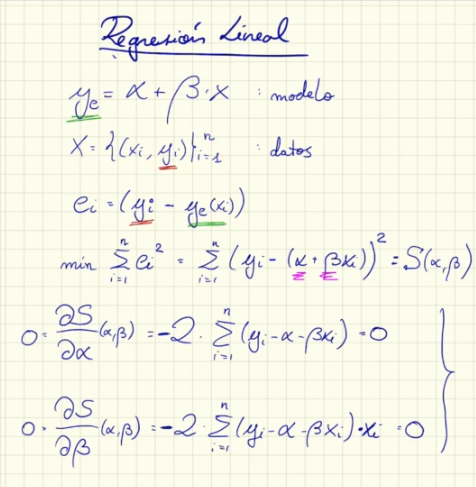 Regresión Lineal
y_e = α + β·x : modelo
X = {(x_i, y_i)}_{i=1}^n : datos
e_i = (y_i - y_e(x_i))
min Σ_{i=1}^n e_i^2 = Σ_{i=1}^n (y_i - (α + βx_i))^2 = S(α,β)
0 = ∂S/∂α (α,β) = -2 · Σ_{i=1}^n (y_i - α - βx_i) = 0
0 = ∂S/∂β (α,β) = -2 · Σ_{i=1}^n (y_i - α - βx_i)·x_i = 0 }